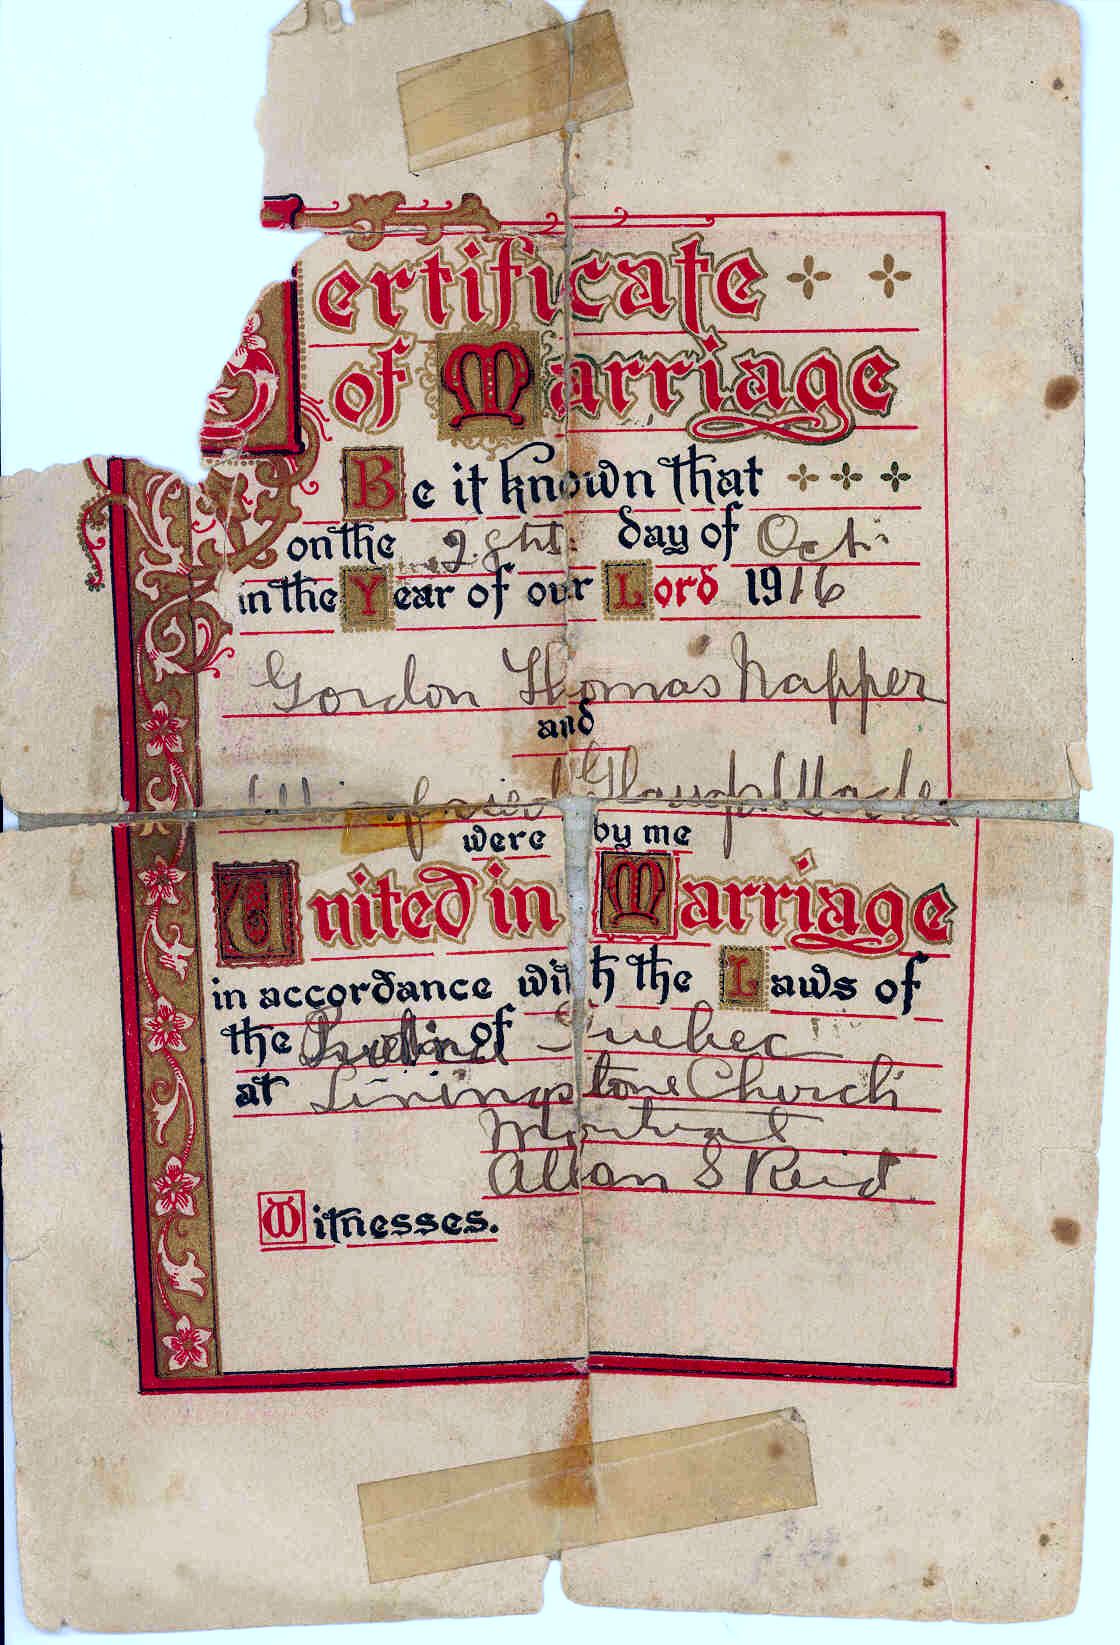 ertificate
of Marriage
Be it known that
on the 28th day of Oct.
in the Year of our Lord 1916
Gordon Thomas Napper
and
were by me
United in Marriage
in accordance with the Laws of
the of Quebec
at Livingstone Church
Montreal
Allan S Reid
Witnesses.